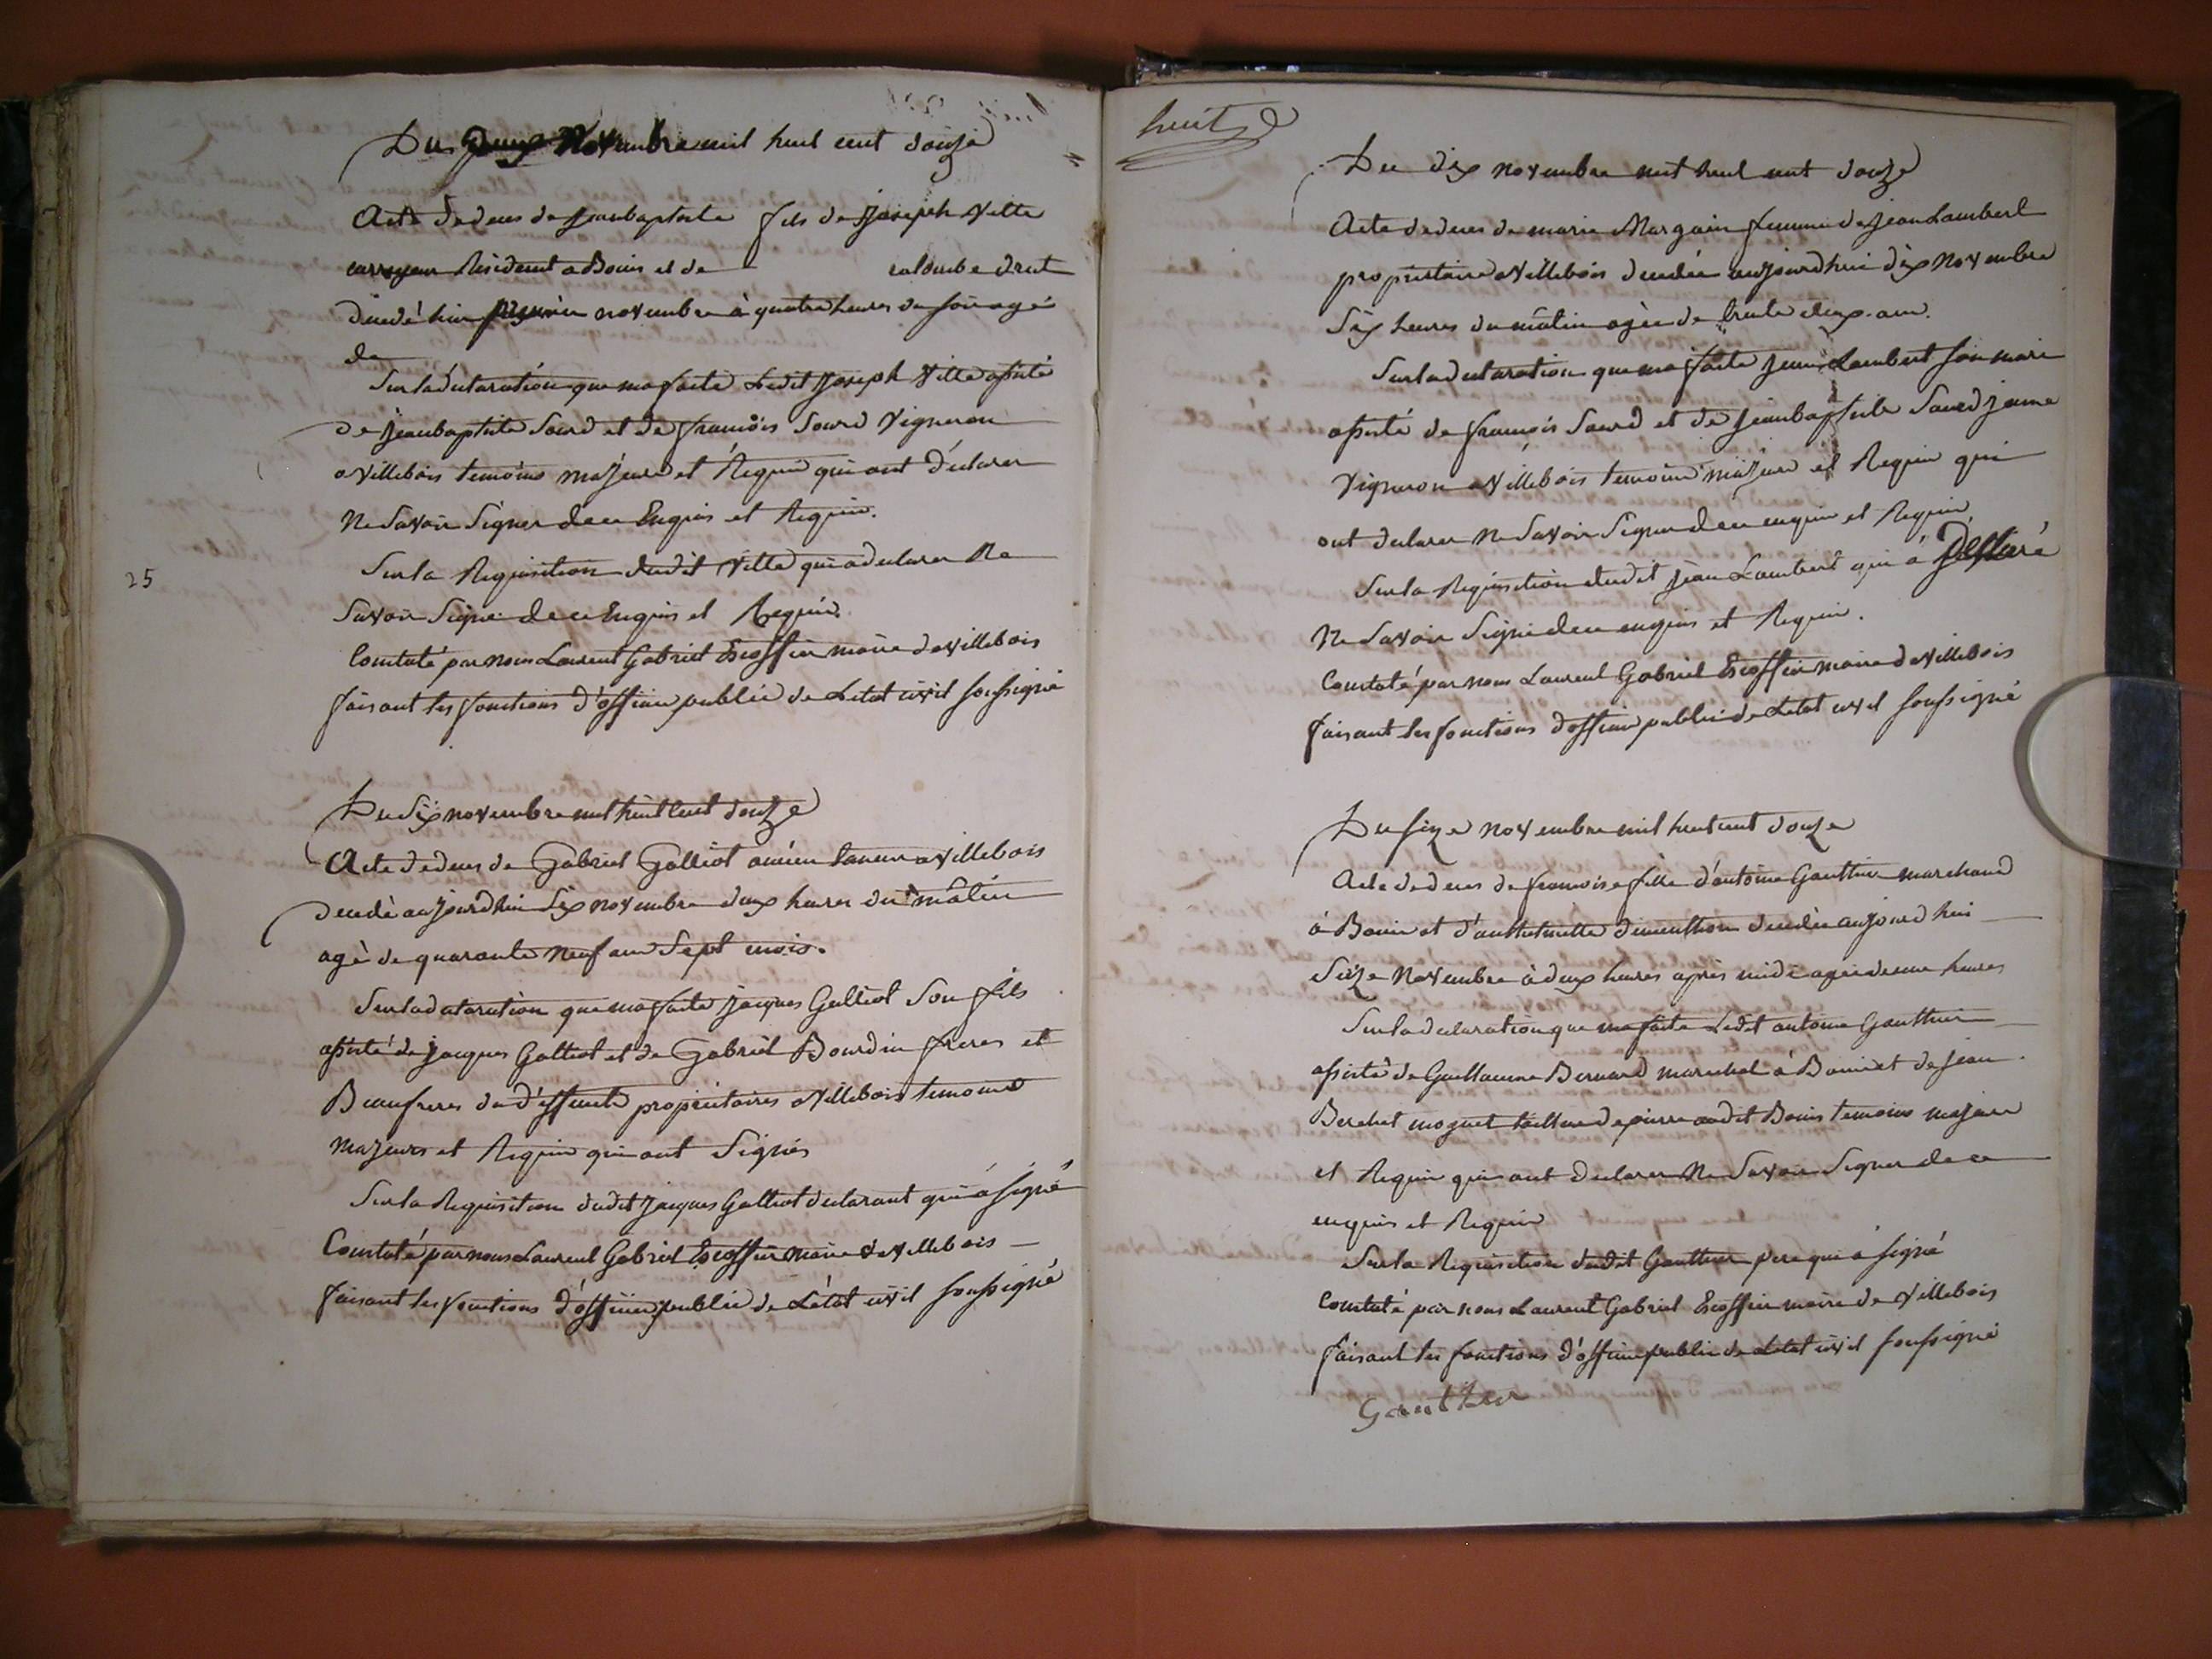 Du deux Novembre mil huit cent douze
Acte de deces de Jeanbaptiste fils de Joseph Ville
carrayeur Résident a Bouis et de colombe drut
décedé hier premier novembre à quatre heures du soir agé
de
Sur la déclaration que ma faite Ledit Joseph Ville assisté
de Jeanbaptiste Sourd et de françois Sourd Vigneron
a Villebois temoins majeurs et Requis qui ont déclarer
Ne Savoir Signer de ce Enquis et Requis.
Sur la Requisition dudit Ville qui a declarer Ne
Savoir Signé de ce Enquis et Requis.
Constaté par nous Laurent Gabriel Escoffier maire de villebois
faisant les fonctions d'officier public de Letat civil soussigné
25
Du Six novembre mil huit cent douze
Acte de deces de Gabriel Galliot ancien a villebois
decedé aujourdhui Six novembre deux heures du mâtin
agé de quarante Neuf ans Sept mois.
Sur la declaration que ma faite Jacques Galliot Son fils
assisté de Jacques Galliot et de Gabriel Bourdin freres et
Beaufreres du deffunt propriétaires a Villebois temoins
majeurs et Requis qui ont Signés
Sur la Requisition dudit Jacques Galliot declarant qui a signé
Constaté par nous Laurent Gabriel Escoffier maire de villebois
faisant les fonctions d'officier public de L'état civil soussigné
huit
Du dix novembre mil huit cent douze
Acte de deces de marie Margain femme de Jean Lambert
propriétaire a Villebois decedée aujourdhui dix Novembre
Six heures du mâtin agée de trente deux ans.
Sur la declaration que ma faite Jean Lambert son mari
assisté de françois Sourd et de Jeanbaptiste Sourd jeune
Vigneron a Villebois temoins majeurs et Requis qui
ont declarer Ne Savoir Signer de ce enquis et Requis
Sur la Requisition dudit Jean Lambert qui a Déclaré
Ne Savoir Signé de ce enquis et Requis.
Constaté par nous Laurent Gabriel Escoffier maire de Villebois
faisant les fonctions d'officier public de Letat civil soussigné
Du seize novembre mil huit cent douze
Acte de deces de francoise fille d'antoine Gauthier marchand
à Bouis et d'anthelmette dimenthon decedée aujourdhui
Seize Novembre à deux heures après midi agée de une heures
Sur la declaration que ma faite Ledit antoine Gauthier
assisté de Guillaume Bernard marechal à Bouis et de Jean
Berchet moguet tailleur de pierre audit Bouis temoins majeurs
et Requis qui ont declarer Ne Savoir Signer de ce
enquis et Requis
Sur la Requisition dudit Gauthier pere qui a signé
Constaté par nous Laurent Gabriel Escoffier maire de Villebois
faisant les fonctions d'officier public de Letat civil soussigné
Gauthier